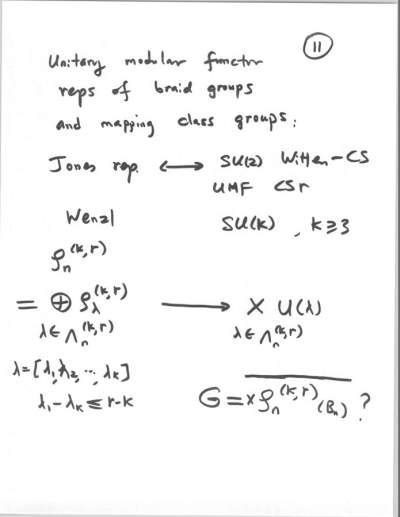 11
Unitary modular functor
reps of braid groups
and mapping class groups:
Jones rep. ⟷ SU(2) Witten-CS
UMF CSr
Wenzl SU(k), k≥3
ρₙ^(k,r)
= ⊕ ρ_λ^(k,r) ⟶ × U(λ)
λ∈Λₙ^(k,r) λ∈Λₙ^(k,r)
λ=[λ₁,λ₂,…,λₖ]
λ₁-λₖ≤r-k G=×ρₙ^(k,r)(Bₙ)?